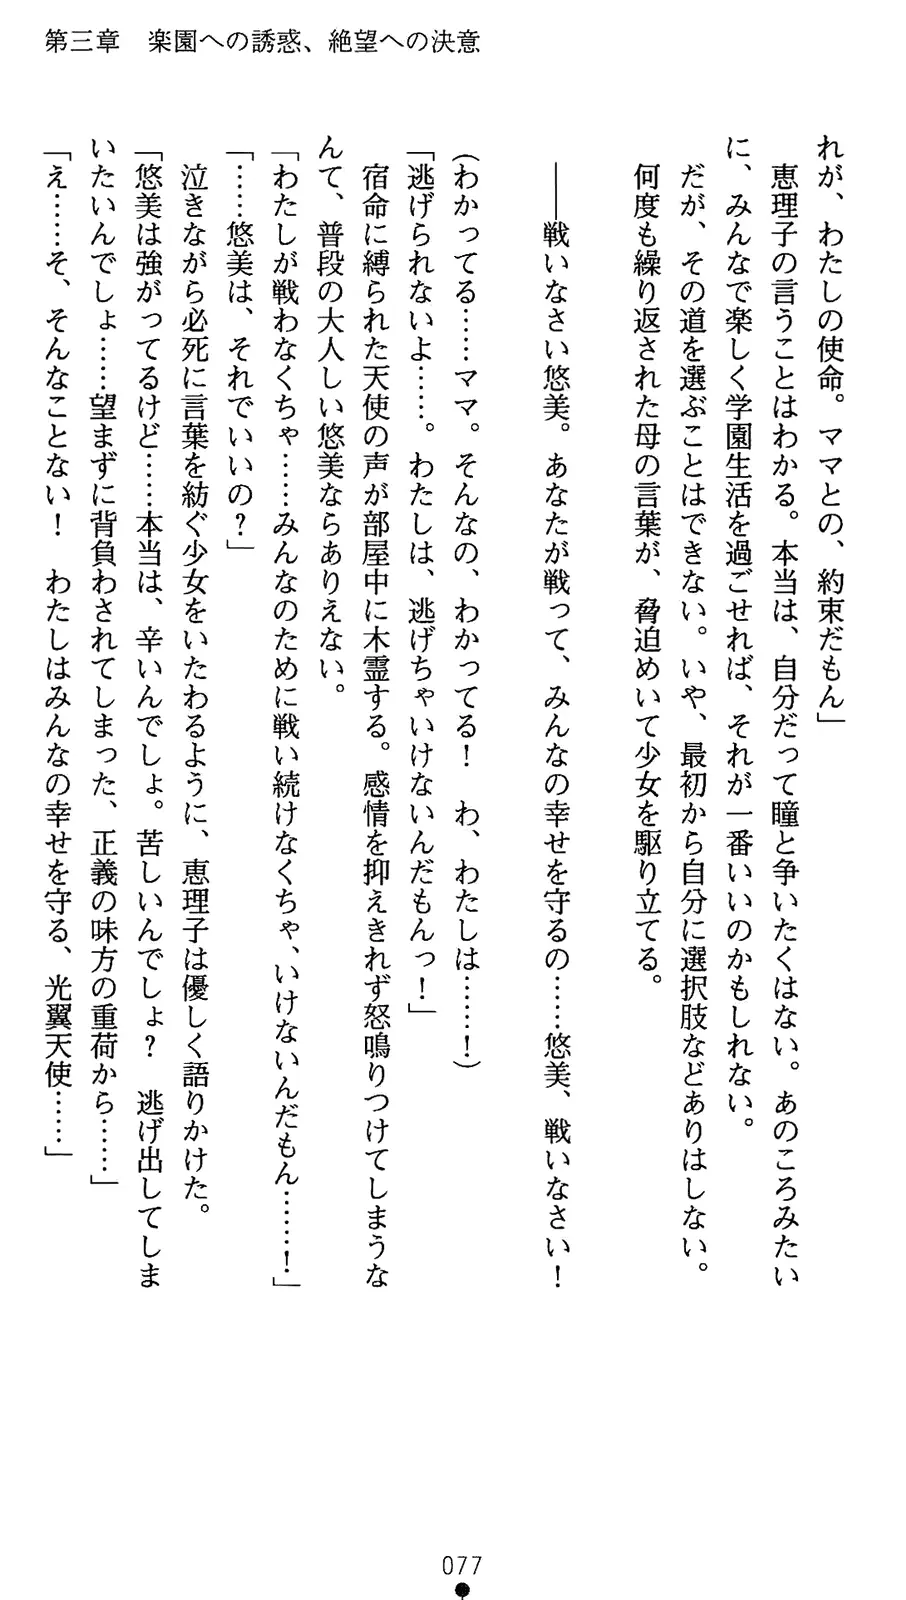 第三章　楽園への誘惑、絶望への決意
れが、わたしの使命。ママとの、約束だもん」
　恵理子の言うことはわかる。本当は、自分だって瞳と争いたくはない。あのころみたい
に、みんなで楽しく学園生活を過ごせれば、それが一番いいのかもしれない。
　だが、その道を選ぶことはできない。いや、最初から自分に選択肢などありはしない。
　何度も繰り返された母の言葉が、脅迫めいて少女を駆り立てる。
　――戦いなさい悠美。あなたが戦って、みんなの幸せを守るの……悠美、戦いなさい！
（わかってる……ママ。そんなの、わかってる！　わ、わたしは……！）
「逃げられないよ……。わたしは、逃げちゃいけないんだもんっ！」
　宿命に縛られた天使の声が部屋中に木霊する。感情を抑えきれず怒鳴りつけてしまうな
んて、普段の大人しい悠美ならありえない。
「わたしが戦わなくちゃ……みんなのために戦い続けなくちゃ、いけないんだもん……！」
「……悠美は、それでいいの？」
　泣きながら必死に言葉を紡ぐ少女をいたわるように、恵理子は優しく語りかけた。
「悠美は強がってるけど……本当は、辛いんでしょ。苦しいんでしょ？　逃げ出してしま
いたいんでしょ……望まずに背負わされてしまった、正義の味方の重荷から……」
「え……そ、そんなことない！　わたしはみんなの幸せを守る、光翼天使……」
077